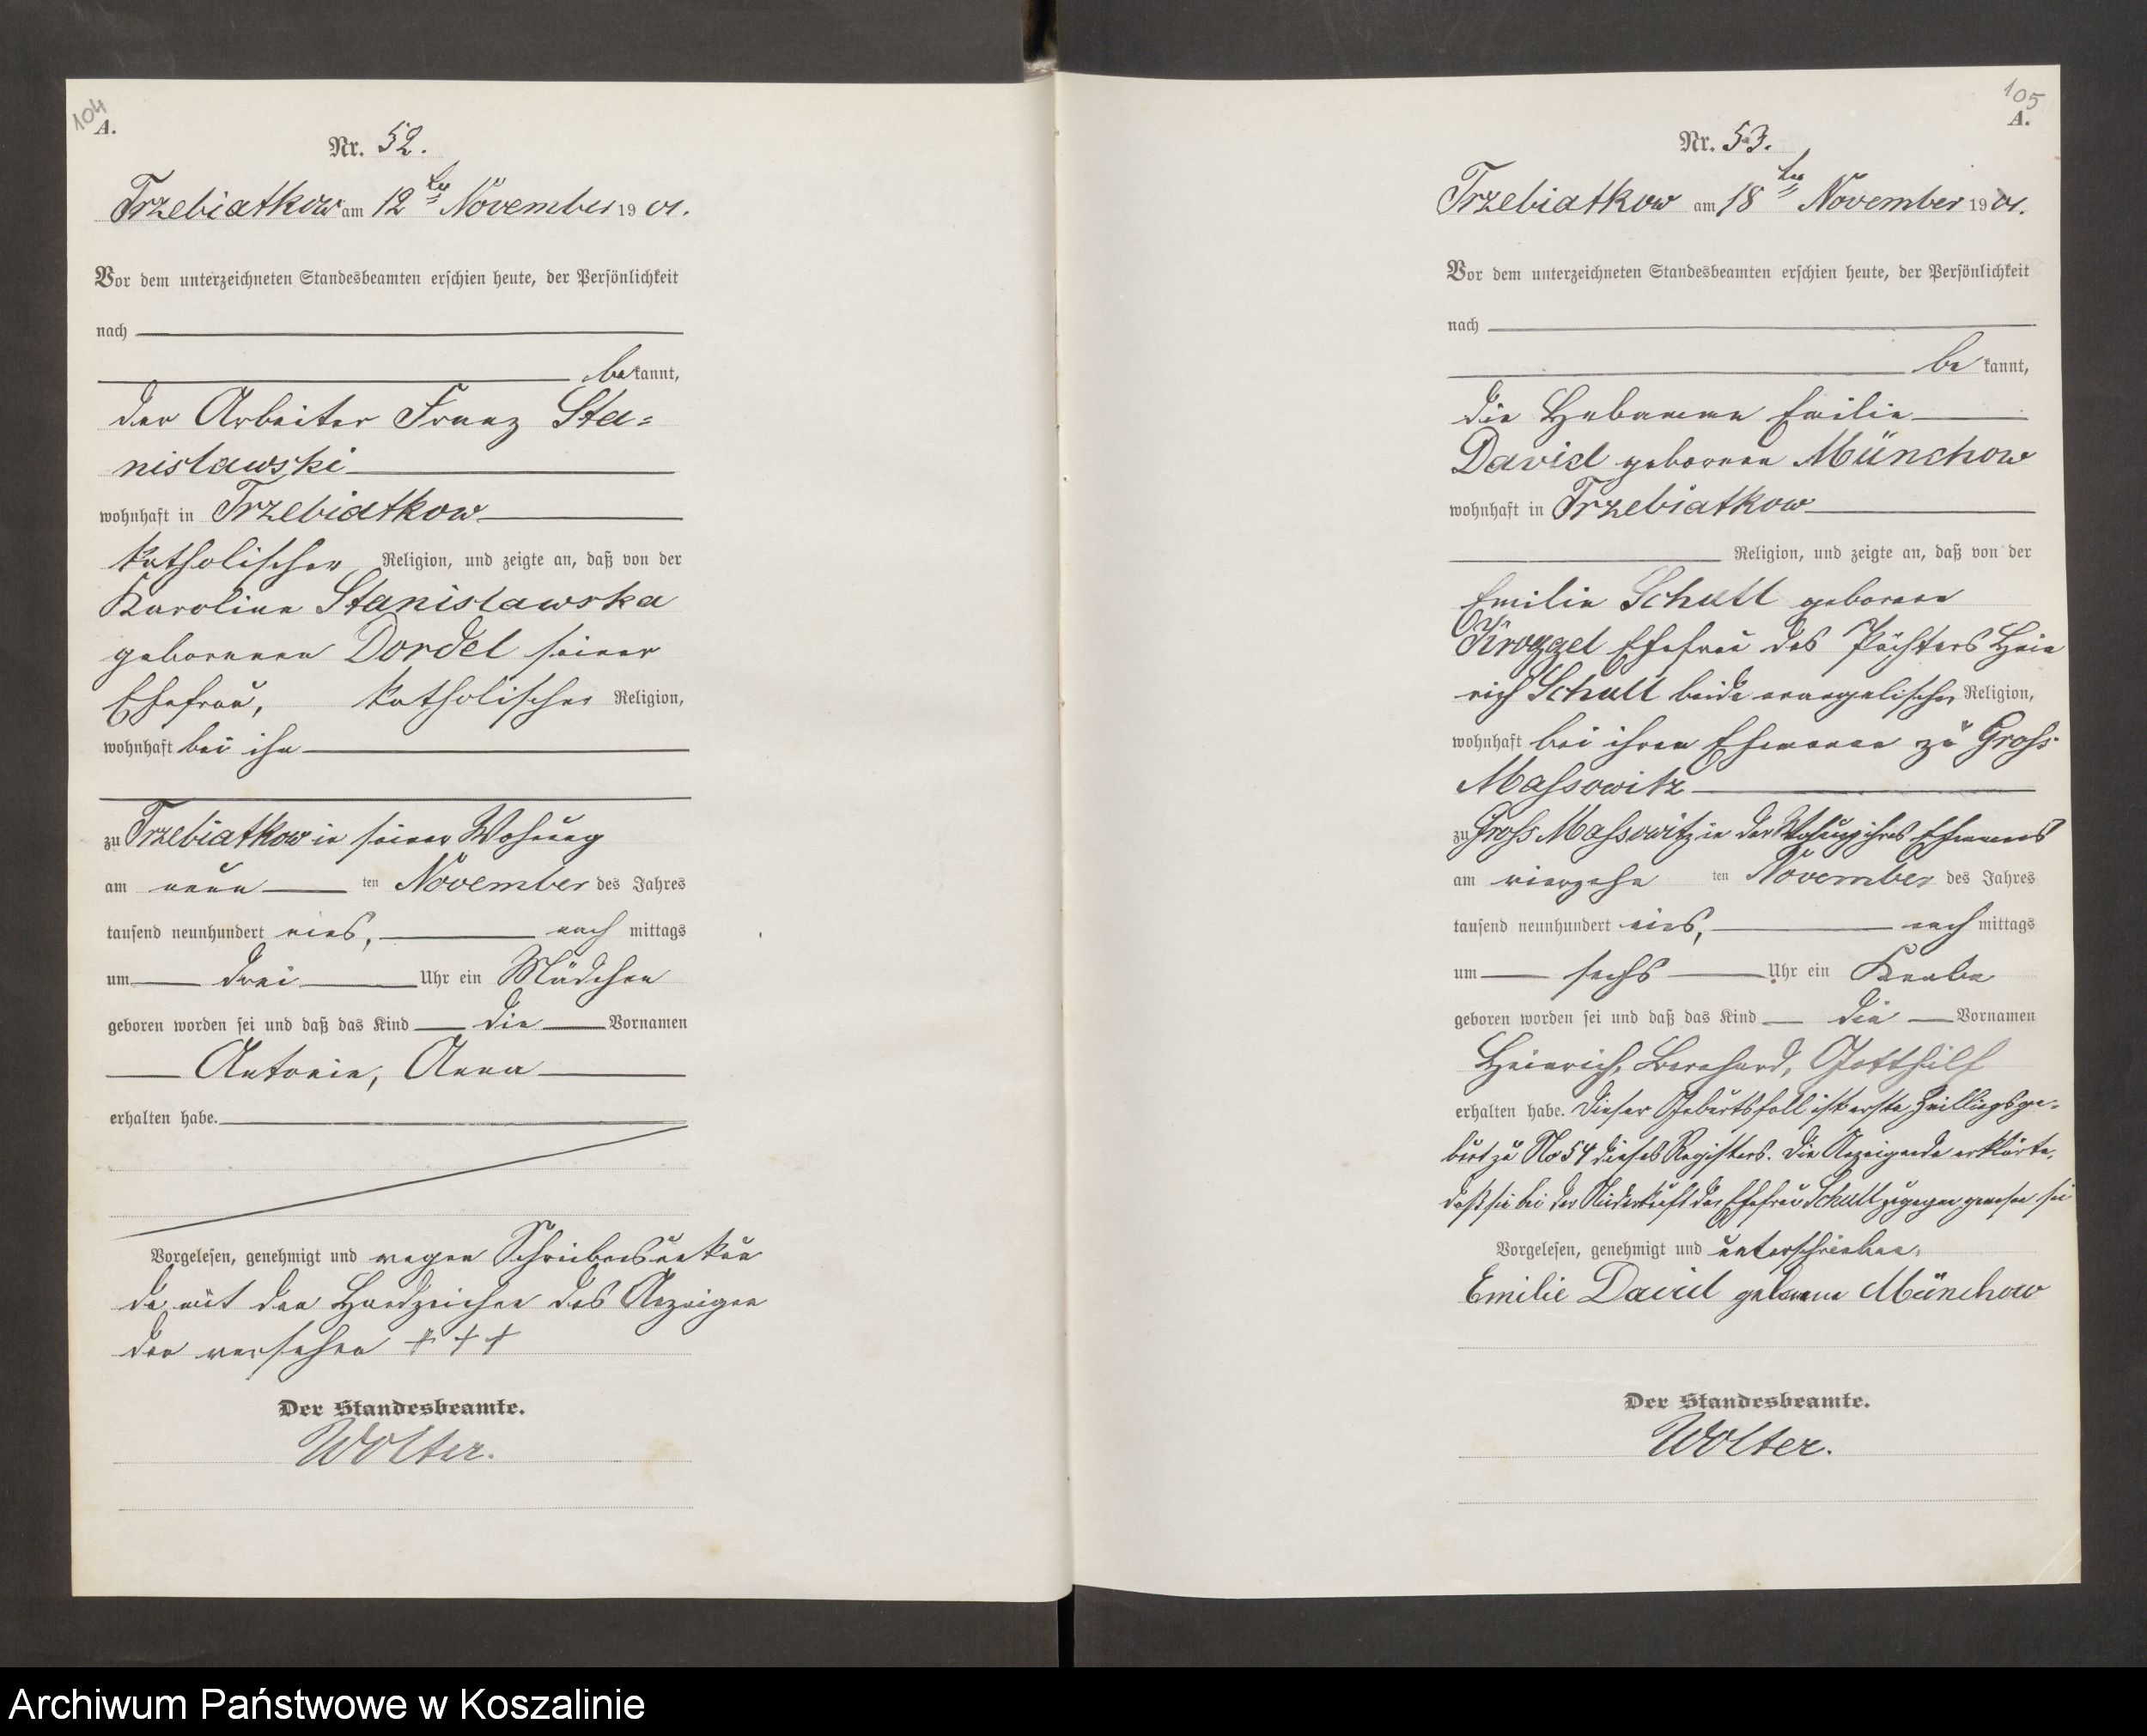 104
A.
Nr. 52.
Trzebiatkow am 12ten November 19 01.
Vor dem unterzeichneten Standesbeamten erschien heute, der Persönlichkeit
nach
be kannt,
der Arbeiter Franz Sta=
nislawski
wohnhaft in Trzebiatkow
katholischer Religion, und zeigte an, daß von der
Karoline Stanislawska
geborenen Dordel seiner
Ehefrau, katholischer Religion,
wohnhaft bei ihm
zu Trzebiatkow in seiner Wohnung
am neun ten November des Jahres
tausend neunhundert eins, nach mittags
um drei Uhr ein Mädchen
geboren worden sei und daß das Kind die Vornamen
Antonie, Anna
erhalten habe.
Vorgelesen, genehmigt und wegen Schreibensunkun
de mit den Handzeichen des Anzeigen
den versehen + + +
Der Standesbeamte.
Wolter.
105
A.
Nr. 53.
Trzebiatkow am 18ten November 19 01.
Vor dem unterzeichneten Standesbeamten erschien heute, der Persönlichkeit
nach
be kannt,
die Hebamme Emilie
David geborene Münchow
wohnhaft in Trzebiatkow
Religion, und zeigte an, daß von der
Emilie Schutt geborene
Kroggel Ehefrau des Pächters Hein
rich Schutt beide evangelischer Religion,
wohnhaft bei ihrem Ehemann zu Gross
Massowitz
zu Gross Massowitz in der Wohnung ihres Ehemanns
am vierzehn ten November des Jahres
tausend neunhundert eins, nach mittags
um sechs Uhr ein Knabe
geboren worden sei und daß das Kind die Vornamen
Heinrich, Bernhard, Gotthilf
erhalten habe. Dieser Geburtsfall ist erste Zwillingsge=
burt zu No 54 dieses Registers. Die Anzeigende erklärte,
daß sie bei der Niederkunft der Ehefrau Schutt zugegen gewesen sei
Vorgelesen, genehmigt und unterschrieben,
Emilie David geborene Münchow
Der Standesbeamte.
Wolter.
Archiwum Państwowe w Koszalinie